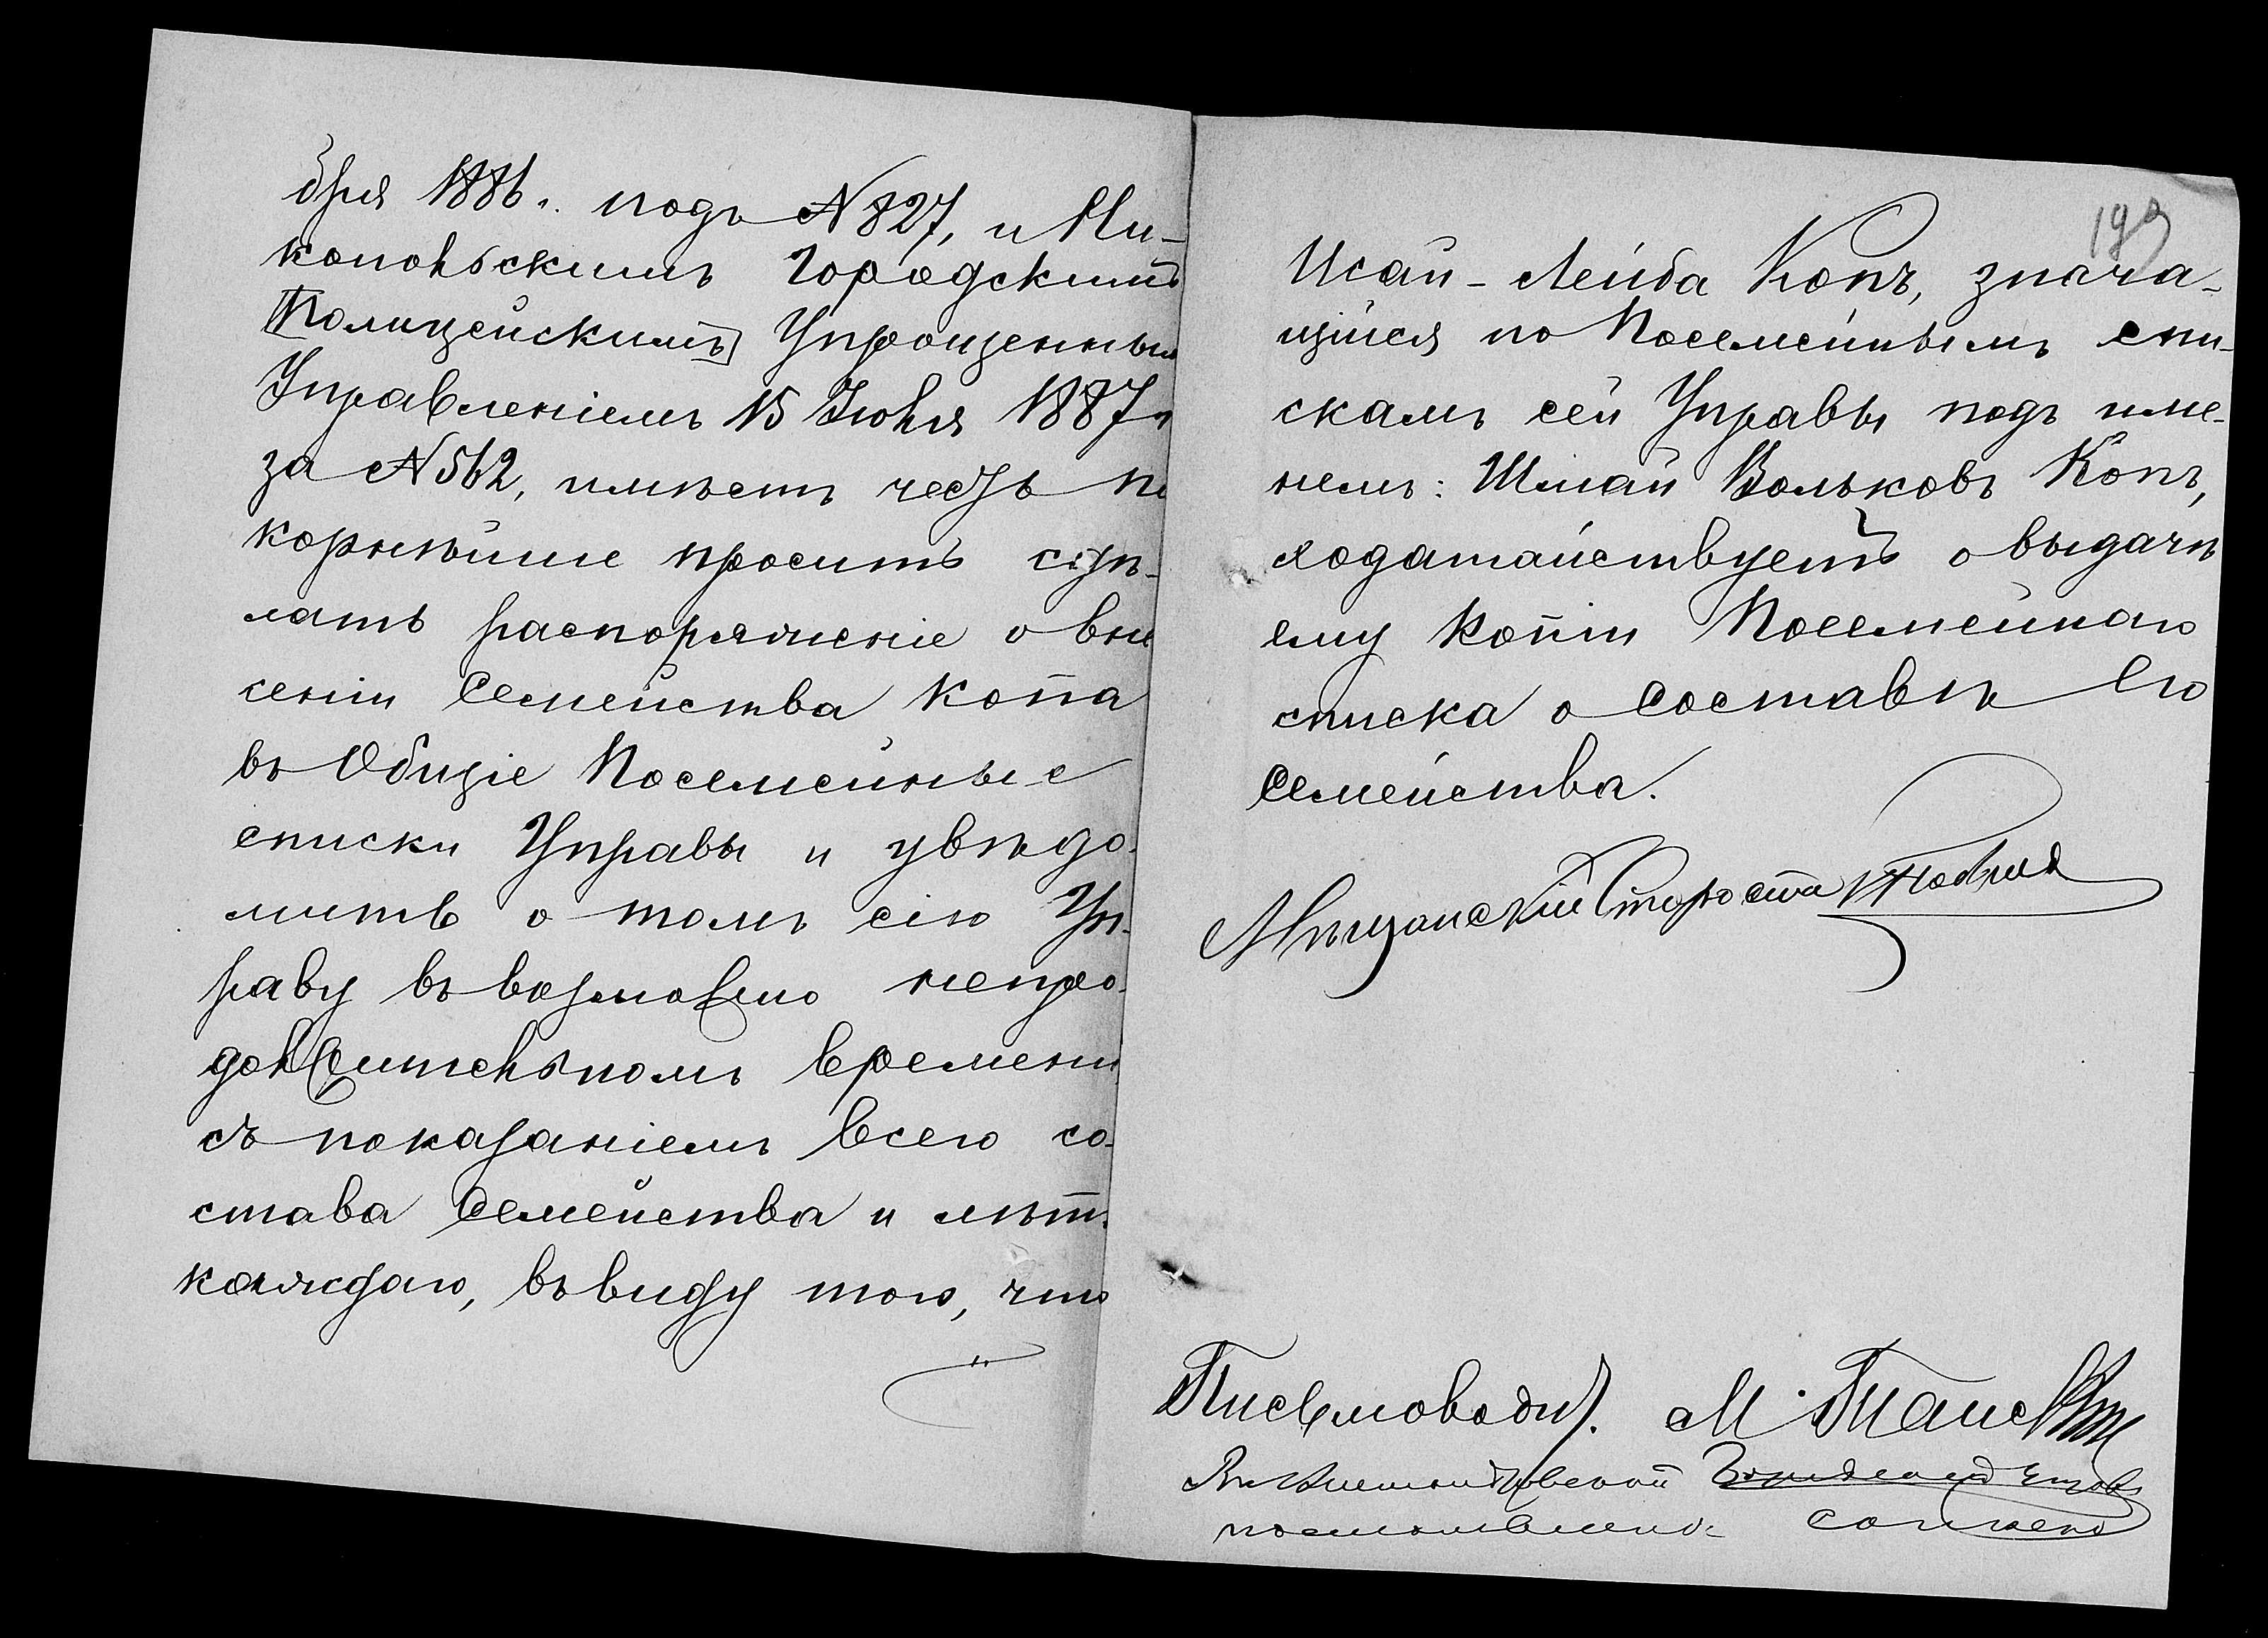 бря 1886 г. подъ N 827, и Ни-
копольскимъ Городскимъ
[Полицейскимъ] Упрощеннымъ
Управленіемъ 15 Іюля 1887 г
за N 562, имѣетъ честь по
корнѣйше проситъ сдѣ-
лать распоряженіе о вне
сеніи Семейства Копа
въ Общіе Посемейные
списки Управы и увѣдо-
мить о томъ сію Уп-
раву въ возможно непро-
должительномъ времени
съ показаніемъ всего со-
става Семейства и лѣтъ
каждаго, въ виду того, что
199
Исай-Лейба Копъ, знача-
щійся по Посемейнымъ спи-
скамъ сей Управы подъ име-
немъ: Шмай Вольковъ Копъ,
ходатайствуетъ о выдачѣ
ему Копіи Посемейнаго
списка о Составѣ Его
Семейства.
Мѣщанскій Староста
Письмовод. М.